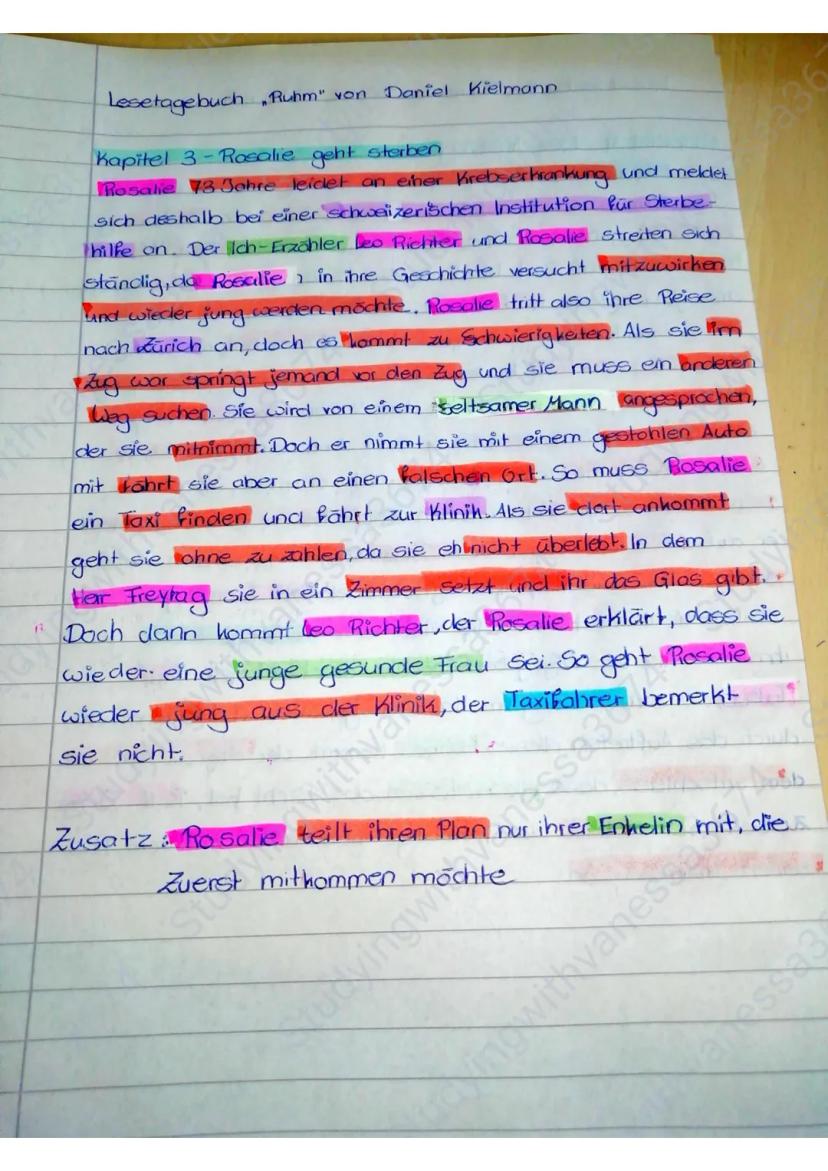 Lesetagebuch „Ruhm" von Daniel Kielmann
Kapitel 3 - Rosalie geht sterben
Rosalie 73 Jahre leidet an einer Krebserkrankung und meldet
sich deshalb bei einer schweizerischen Institution für Sterbe-
hilfe an. Der Ich-Erzähler Leo Richter und Rosalie streiten sich
ständig, da Rosalie, in ihre Geschichte versucht mitzuwirken
und wieder jung werden möchte. Rosalie tritt also ihre Reise
nach Zürich an, doch es kommt zu Schwierigkeiten. Als sie im
Zug war springt jemand vor den Zug und sie muss ein anderen
Weg suchen. Sie wird von einem seltsamer Mann angesprochen,
der sie mitnimmt. Doch er nimmt sie mit einem gestohlen Auto
mit fährt sie aber an einen falschen Ort. So muss Rosalie
ein Taxi finden und fährt zur Klinik. Als sie dort ankommt
geht sie ohne zu zahlen, da sie eh nicht überlebt. In dem
Herr Freytag sie in ein Zimmer setzt und ihr das Glas gibt.
Doch dann kommt Leo Richter, der Rosalie erklärt, dass sie
wieder eine junge gesunde Frau sei. So geht Rosalie
wieder jung aus der Klinik, der Taxifahrer bemerkt
sie nicht.
Zusatz: Rosalie teilt ihren Plan nur ihrer Enkelin mit, die
Zuerst mitkommen möchte
Studyingwithvanessa3674